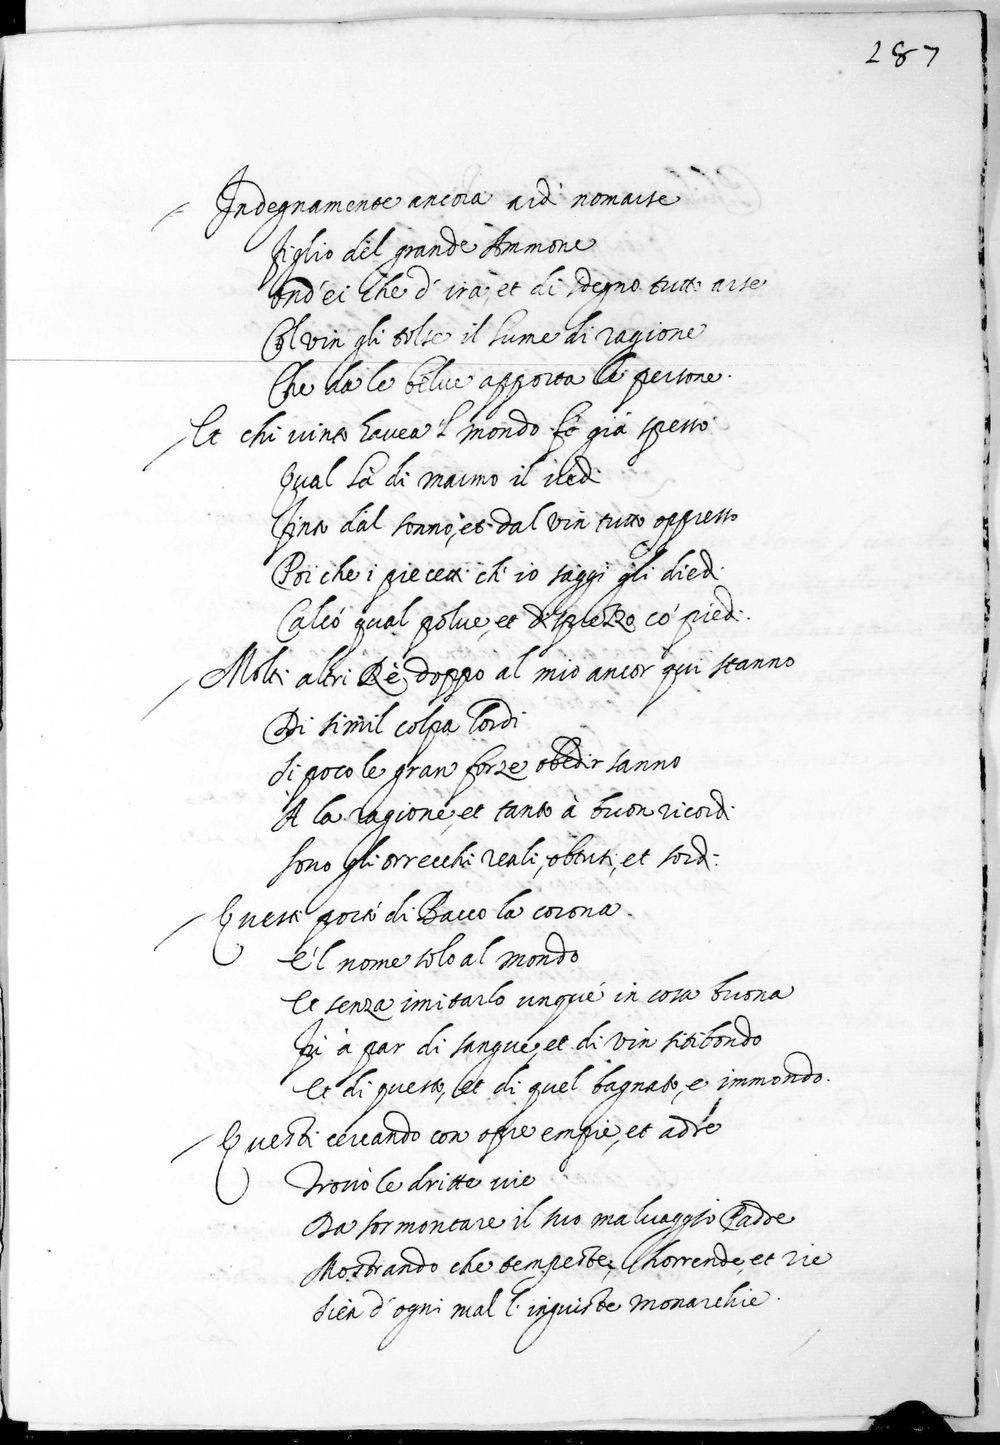 287
Indegnamente ancora ardì nomarse
figlio del grande Ammone
ond'ei che d'ira, et di sdegno tutto arse
Col vin gli tolse il lume di ragione
Che da le belue apporta le persone.
Et chi uinto hauea 'l mondo fè già spesso
qual là di marmo il uedi
finto dal sonno, et dal vin tutto oppresso
Poi che i precetti ch'io saggi gli diedi
Calcò qual polue, et disprezzo co' piedi.
Molti altri Rè doppo al mio ancor qui stanno
Di simil colpa lordi
si poco le gran forze obedir sanno
A la ragione, et tanto à buon ricordi
sono gli orrecchi reali, obtusi, et sordi.
Questi portò di Bacco la corona.
e'l nome solo al mondo
et senza imitarlo unqué in cosa buona
fù à par di sangue, et di vin sitibondo
et di questo, et di quel bagnato, e immondo.
Questi cercando con opre empie, et adre
trouò le dritte uie
Da sormontare il suo maluaggio Padre
Mostrando che tempeste, horrende, et rie
sien d'ogni mal l'ingiuste monarchie.